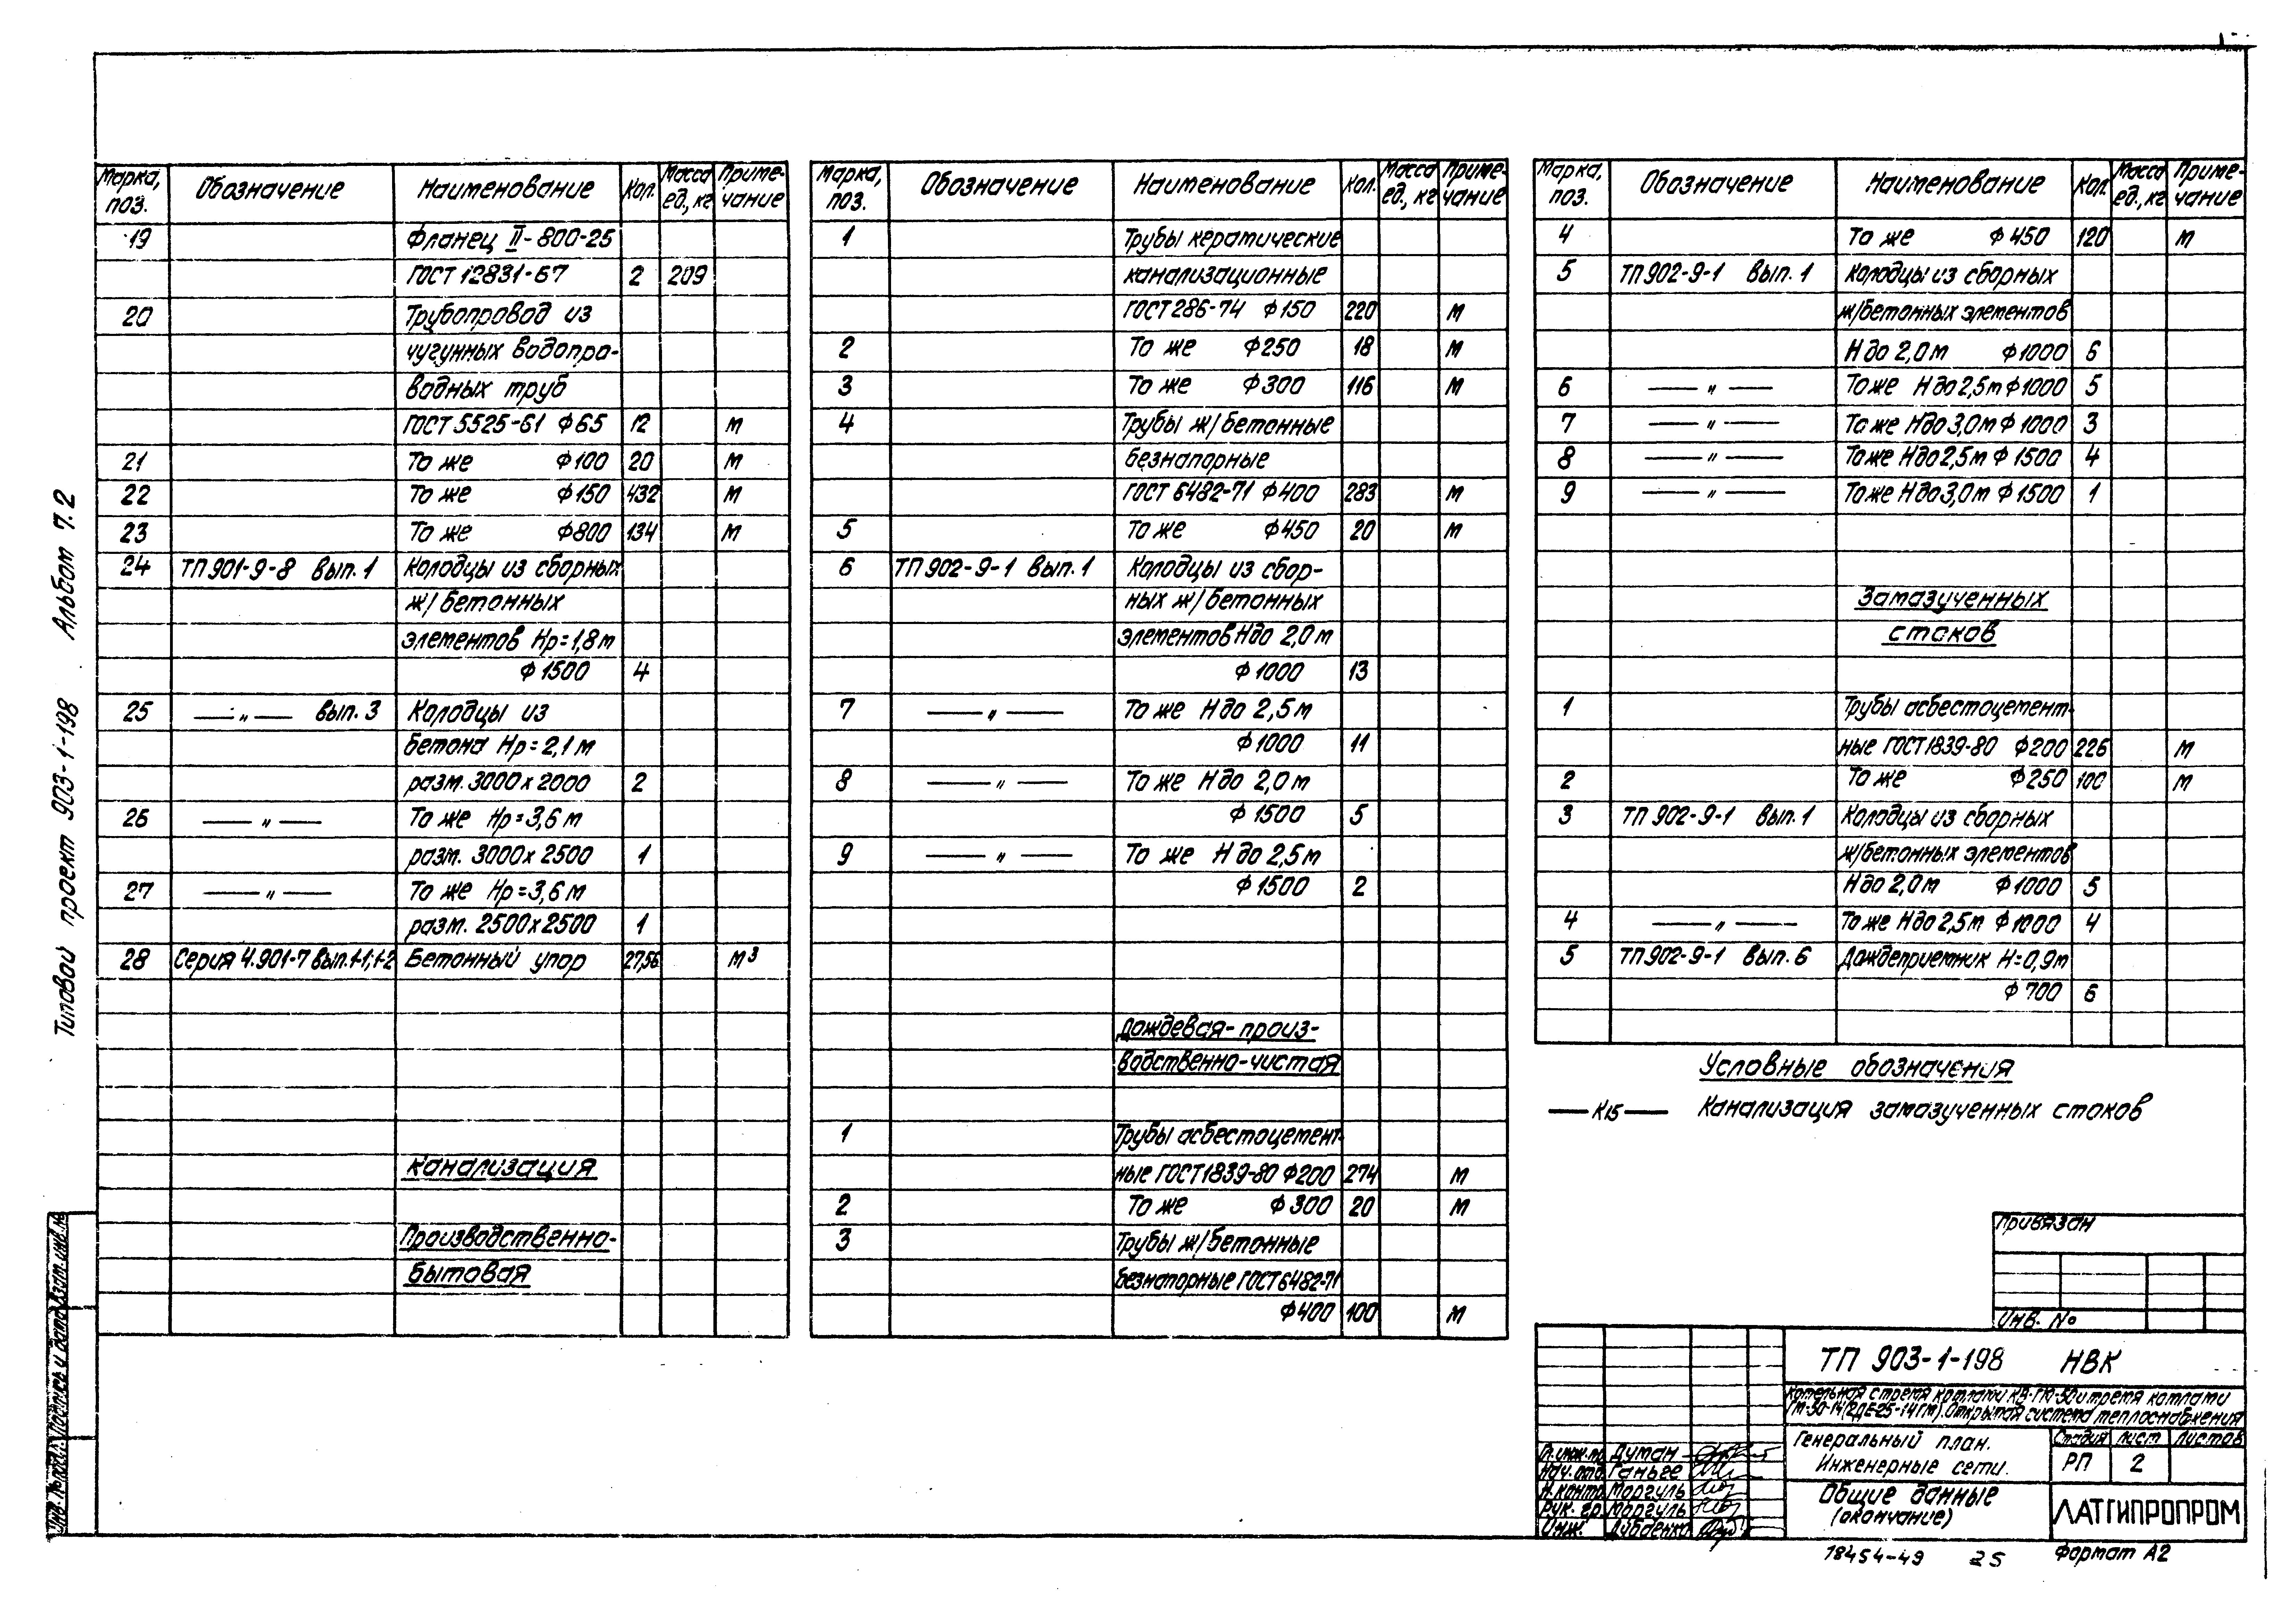 Типовой проект 903-1-198 Альбом 7.2
Марка, поз. Обозначение Наименование Кол. Масса ед., кг Приме-чание
19 Фланец II-800-25
ГОСТ 12831-67 2 209
20 Трубопровод из
чугунных водопро-
водных труб
ГОСТ 5525-61 ф65 12 м
21 То же ф100 20 м
22 То же ф150 432 м
23 То же ф800 134 м
24 ТП 901-9-8 вып. 1 Колодцы из сборных
ж/бетонных
элементов Нр=1,8м
ф1500 4
25 —„— вып. 3 Колодцы из
бетона Нр=2,1м
разм. 3000х2000 2
26 —„— То же Нр=3,6м
разм. 3000х2500 1
27 —„— То же Нр=3,6м
разм. 2500х2500 1
28 Серия 4.901-7 вып.1-1;1-2 Бетонный упор 27,56 м³
Канализация
Производственно-
бытовая
Марка, поз. Обозначение Наименование Кол. Масса ед., кг Приме-чание
1 Трубы керамические
канализационные
ГОСТ 286-74 ф150 220 м
2 То же ф250 18 м
3 То же ф300 116 м
4 Трубы ж/бетонные
безнапорные
ГОСТ 6482-71 ф400 283 м
5 То же ф450 20 м
6 ТП 902-9-1 вып. 1 Колодцы из сбор-
ных ж/бетонных
элементов Ндо 2,0м
ф1000 13
7 —„— То же Ндо 2,5м
ф1000 11
8 —„— То же Ндо 2,0м
ф1500 5
9 —„— То же Ндо 2,5м
ф1500 2
Дождевая-произ-
водственно-чистая
1 Трубы асбестоцемент-
ные ГОСТ 1839-80 ф200 274 м
2 То же ф300 20 м
3 Трубы ж/бетонные
безнапорные ГОСТ 6482-71
ф400 100 м
Марка, поз. Обозначение Наименование Кол. Масса ед., кг Приме-чание
4 То же ф450 120 м
5 ТП 902-9-1 вып. 1 Колодцы из сборных
ж/бетонных элементов
Ндо 2,0м ф1000 6
6 —„— То же Ндо 2,5м ф1000 5
7 —„— То же Ндо 3,0м ф1000 3
8 —„— То же Ндо 2,5м ф1500 4
9 —„— То же Ндо 3,0м ф1500 1
Замазученных
стоков
1 Трубы асбестоцемент-
ные ГОСТ 1839-80 ф200 226 м
2 То же ф250 100 м
3 ТП 902-9-1 вып. 1 Колодцы из сборных
ж/бетонных элементов
Ндо 2,0м ф1000 5
4 —„— То же Ндо 2,5м ф1000 4
5 ТП 902-9-1 вып. 6 Дождеприемник Н=0,9м
ф700 6
Условные обозначения
—К15— Канализация замазученных стоков
Привязан
Инв. №
ТП 903-1-198 НВК
Котельная с тремя котлами КВ-ГМ-50 и тремя котлами
ГМ-50-14(2ДЕ-25-14ГМ). Открытая система теплоснабжения
Генеральный план.
Инженерные сети.
Стадия Лист Листов
РП 2
Общие данные
(окончание)
ЛАТГИПРОПРОМ
Гл.инж.пр. Думан
Нач. отд. Ганьге
Н.контр. Моргуль
Рук. гр. Моргуль
Инж.
18454-49 25 Формат А2
Инв. № подл. Подпись и дата Взам. инв. №